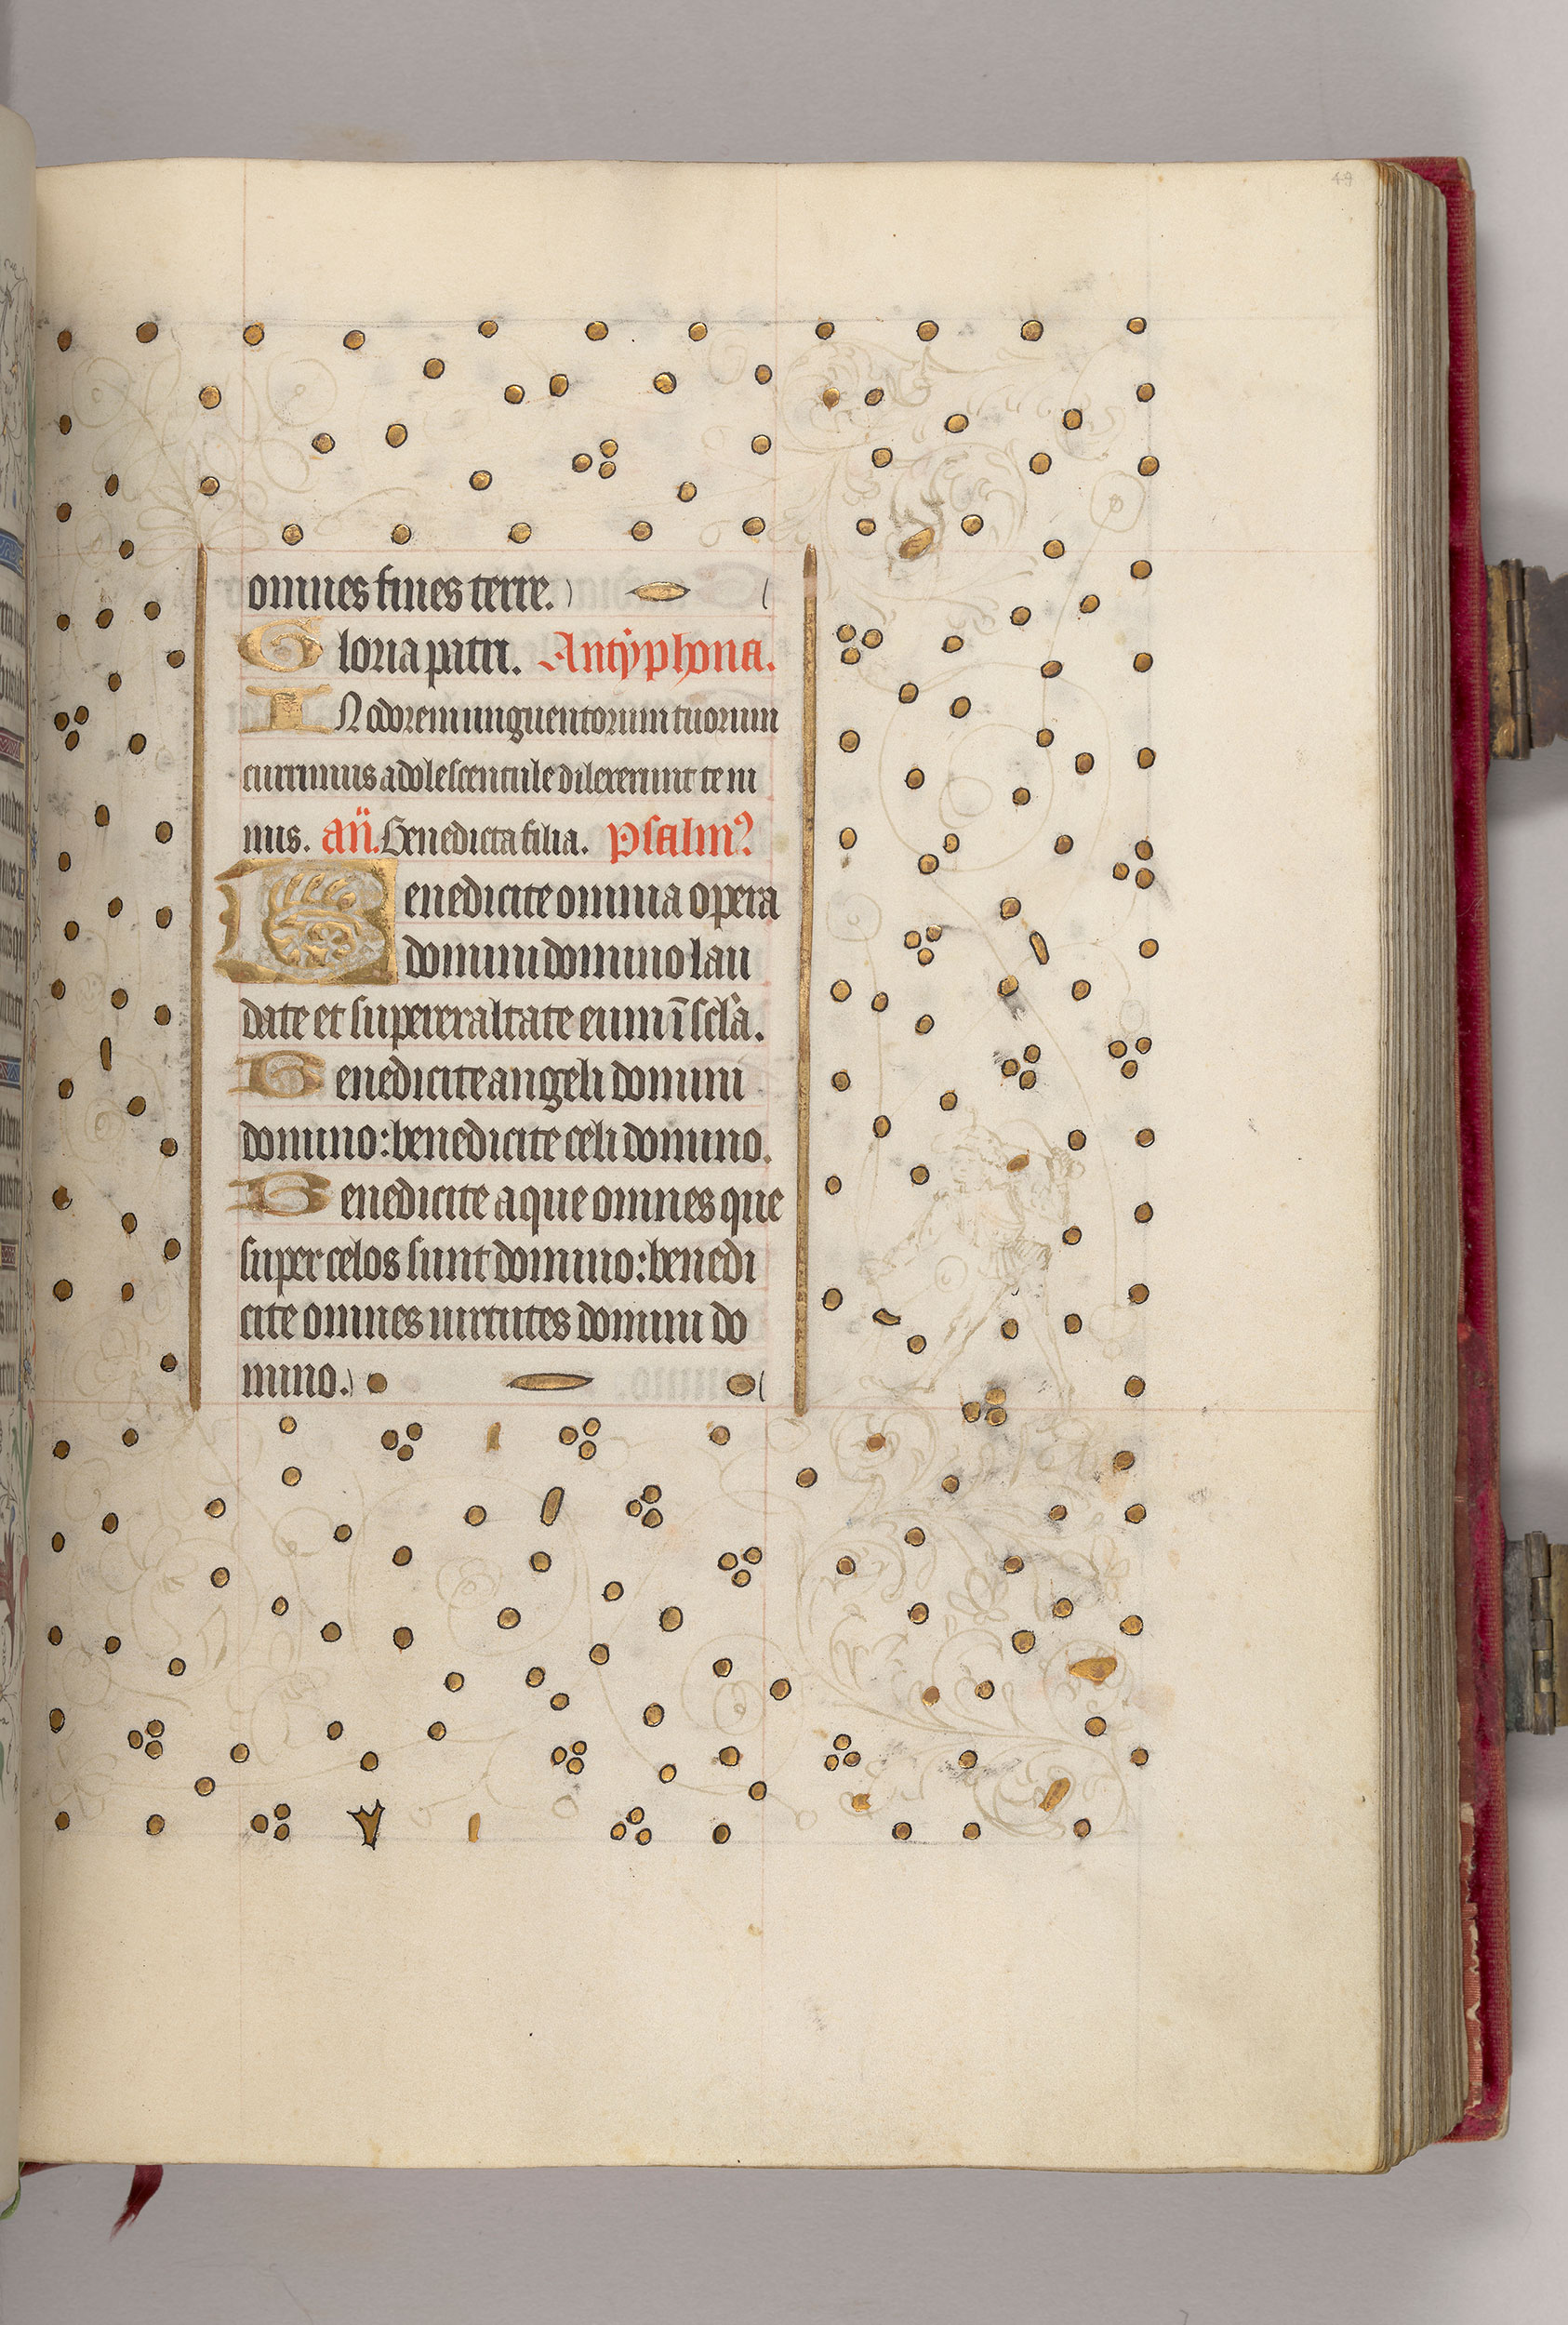 49
omnes fines terre.
Gloria patri. Antyphona.
IN odorem unguentorum tuorum
currimus adolescentule dilexerunt te ni
mis. an̄. Benedicta filia. psalm9
Benedicite omnia opera
domini domino lau
date et superexaltate eum ī scl̄a.
Benedicite angeli domini
domino: benedicite celi domino.
Benedicite aque omnes que
super celos sunt domino: benedi
cite omnes uirtutes domini do
mino.